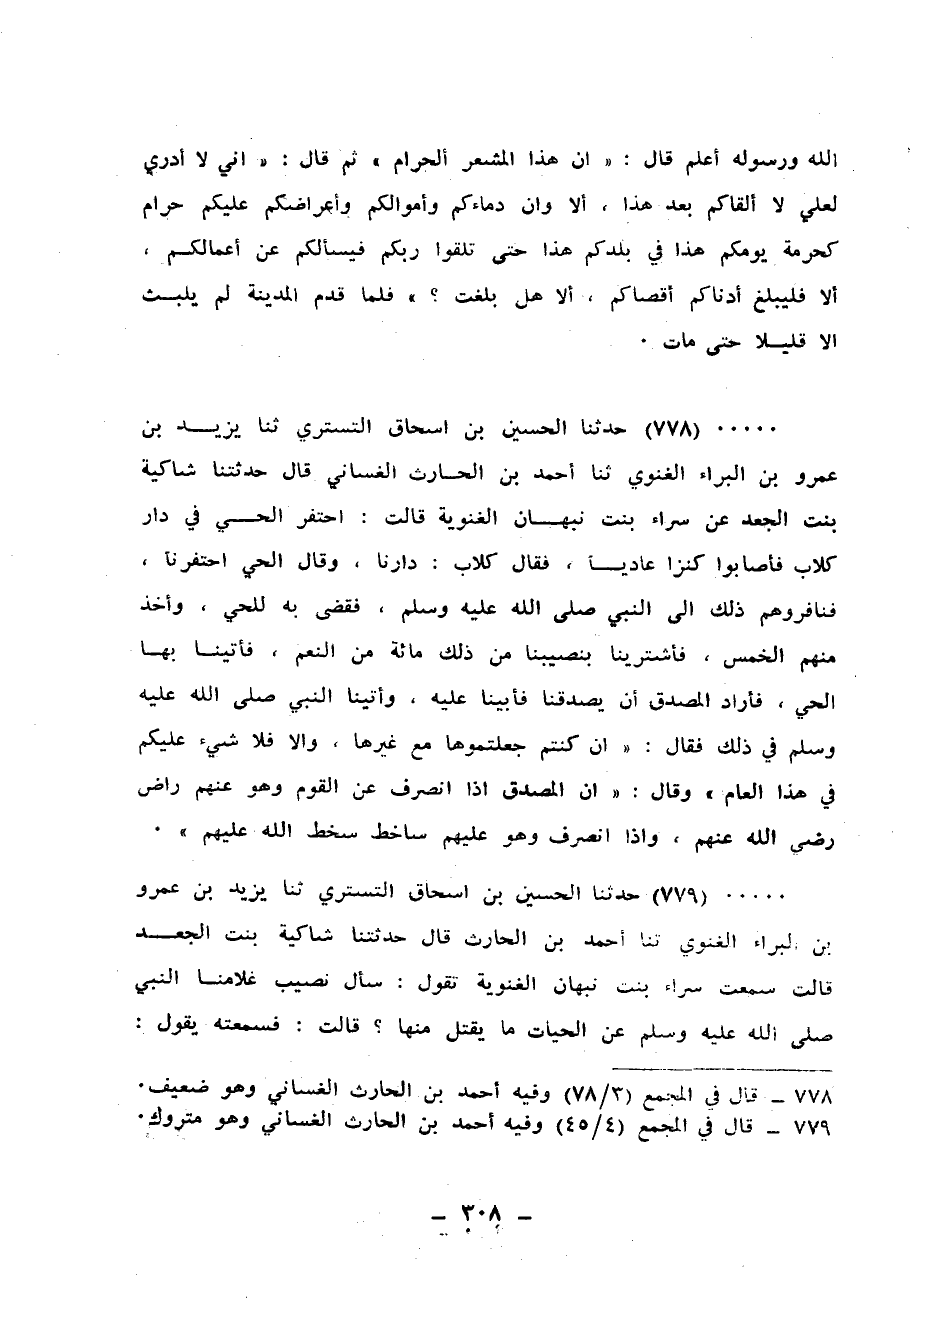 الله ورسوله أعلم قال : « ان هذا المشعر ألحرام » ثم قال : « اني لا أدري
لعلي لا ألقاكم بعد هذا ، ألا وان دماءكم وأموالكم وأعراضكم عليكم حرام
كحرمة يومكم هذا في بلدكم هذا حتى تلقوا ربكم فيسألكم عن أعمالكم ،
ألا فليبلغ أدناكم أقصاكم ، ألا هل بلغت ؟ » فلما قدم المدينة لم يلبث
الا قليلا حتى مات .
..... (٧٧٨) حدثنا الحسين بن اسحاق التستري ثنا يزيد بن
عمرو بن البراء الغنوي ثنا أحمد بن الحارث الغساني قال حدثتنا شاكية
بنت الجعد عن سراء بنت نبهان الغنوية قالت : احتفر الحي في دار
كلاب فأصابوا كنزا عادياً ، فقال كلاب : دارنا ، وقال الحي احتفرنا ،
فنافروهم ذلك الى النبي صلى الله عليه وسلم ، فقضى به للحي ، وأخذ
منهم الخمس ، فأشترينا بنصيبنا من ذلك مائة من النعم ، فأتينا بها
الحي ، فأراد المصدق أن يصدقنا فأبينا عليه ، وأتينا النبي صلى الله عليه
وسلم في ذلك فقال : « ان كنتم جعلتموها مع غيرها ، والا فلا شيء عليكم
في هذا العام » وقال : « ان المصدق اذا انصرف عن القوم وهو عنهم راض
رضي الله عنهم ، واذا انصرف وهو عليهم ساخط سخط الله عليهم » .
..... (٧٧٩) حدثنا الحسين بن اسحاق التستري ثنا يزيد بن عمرو
بن البراء الغنوي ثنا أحمد بن الحارث قال حدثتنا شاكية بنت الجعد
قالت سمعت سراء بنت نبهان الغنوية تقول : سأل نصيب غلامنا النبي
صلى الله عليه وسلم عن الحيات ما يقتل منها ؟ قالت : فسمعته يقول :
٧٧٨ ـ قال في المجمع (٧٨/٣) وفيه أحمد بن الحارث الغساني وهو ضعيف.
٧٧٩ ـ قال في المجمع (٤٥/٤) وفيه أحمد بن الحارث الغساني وهو متروك.
ـ ٣٠٨ ـ